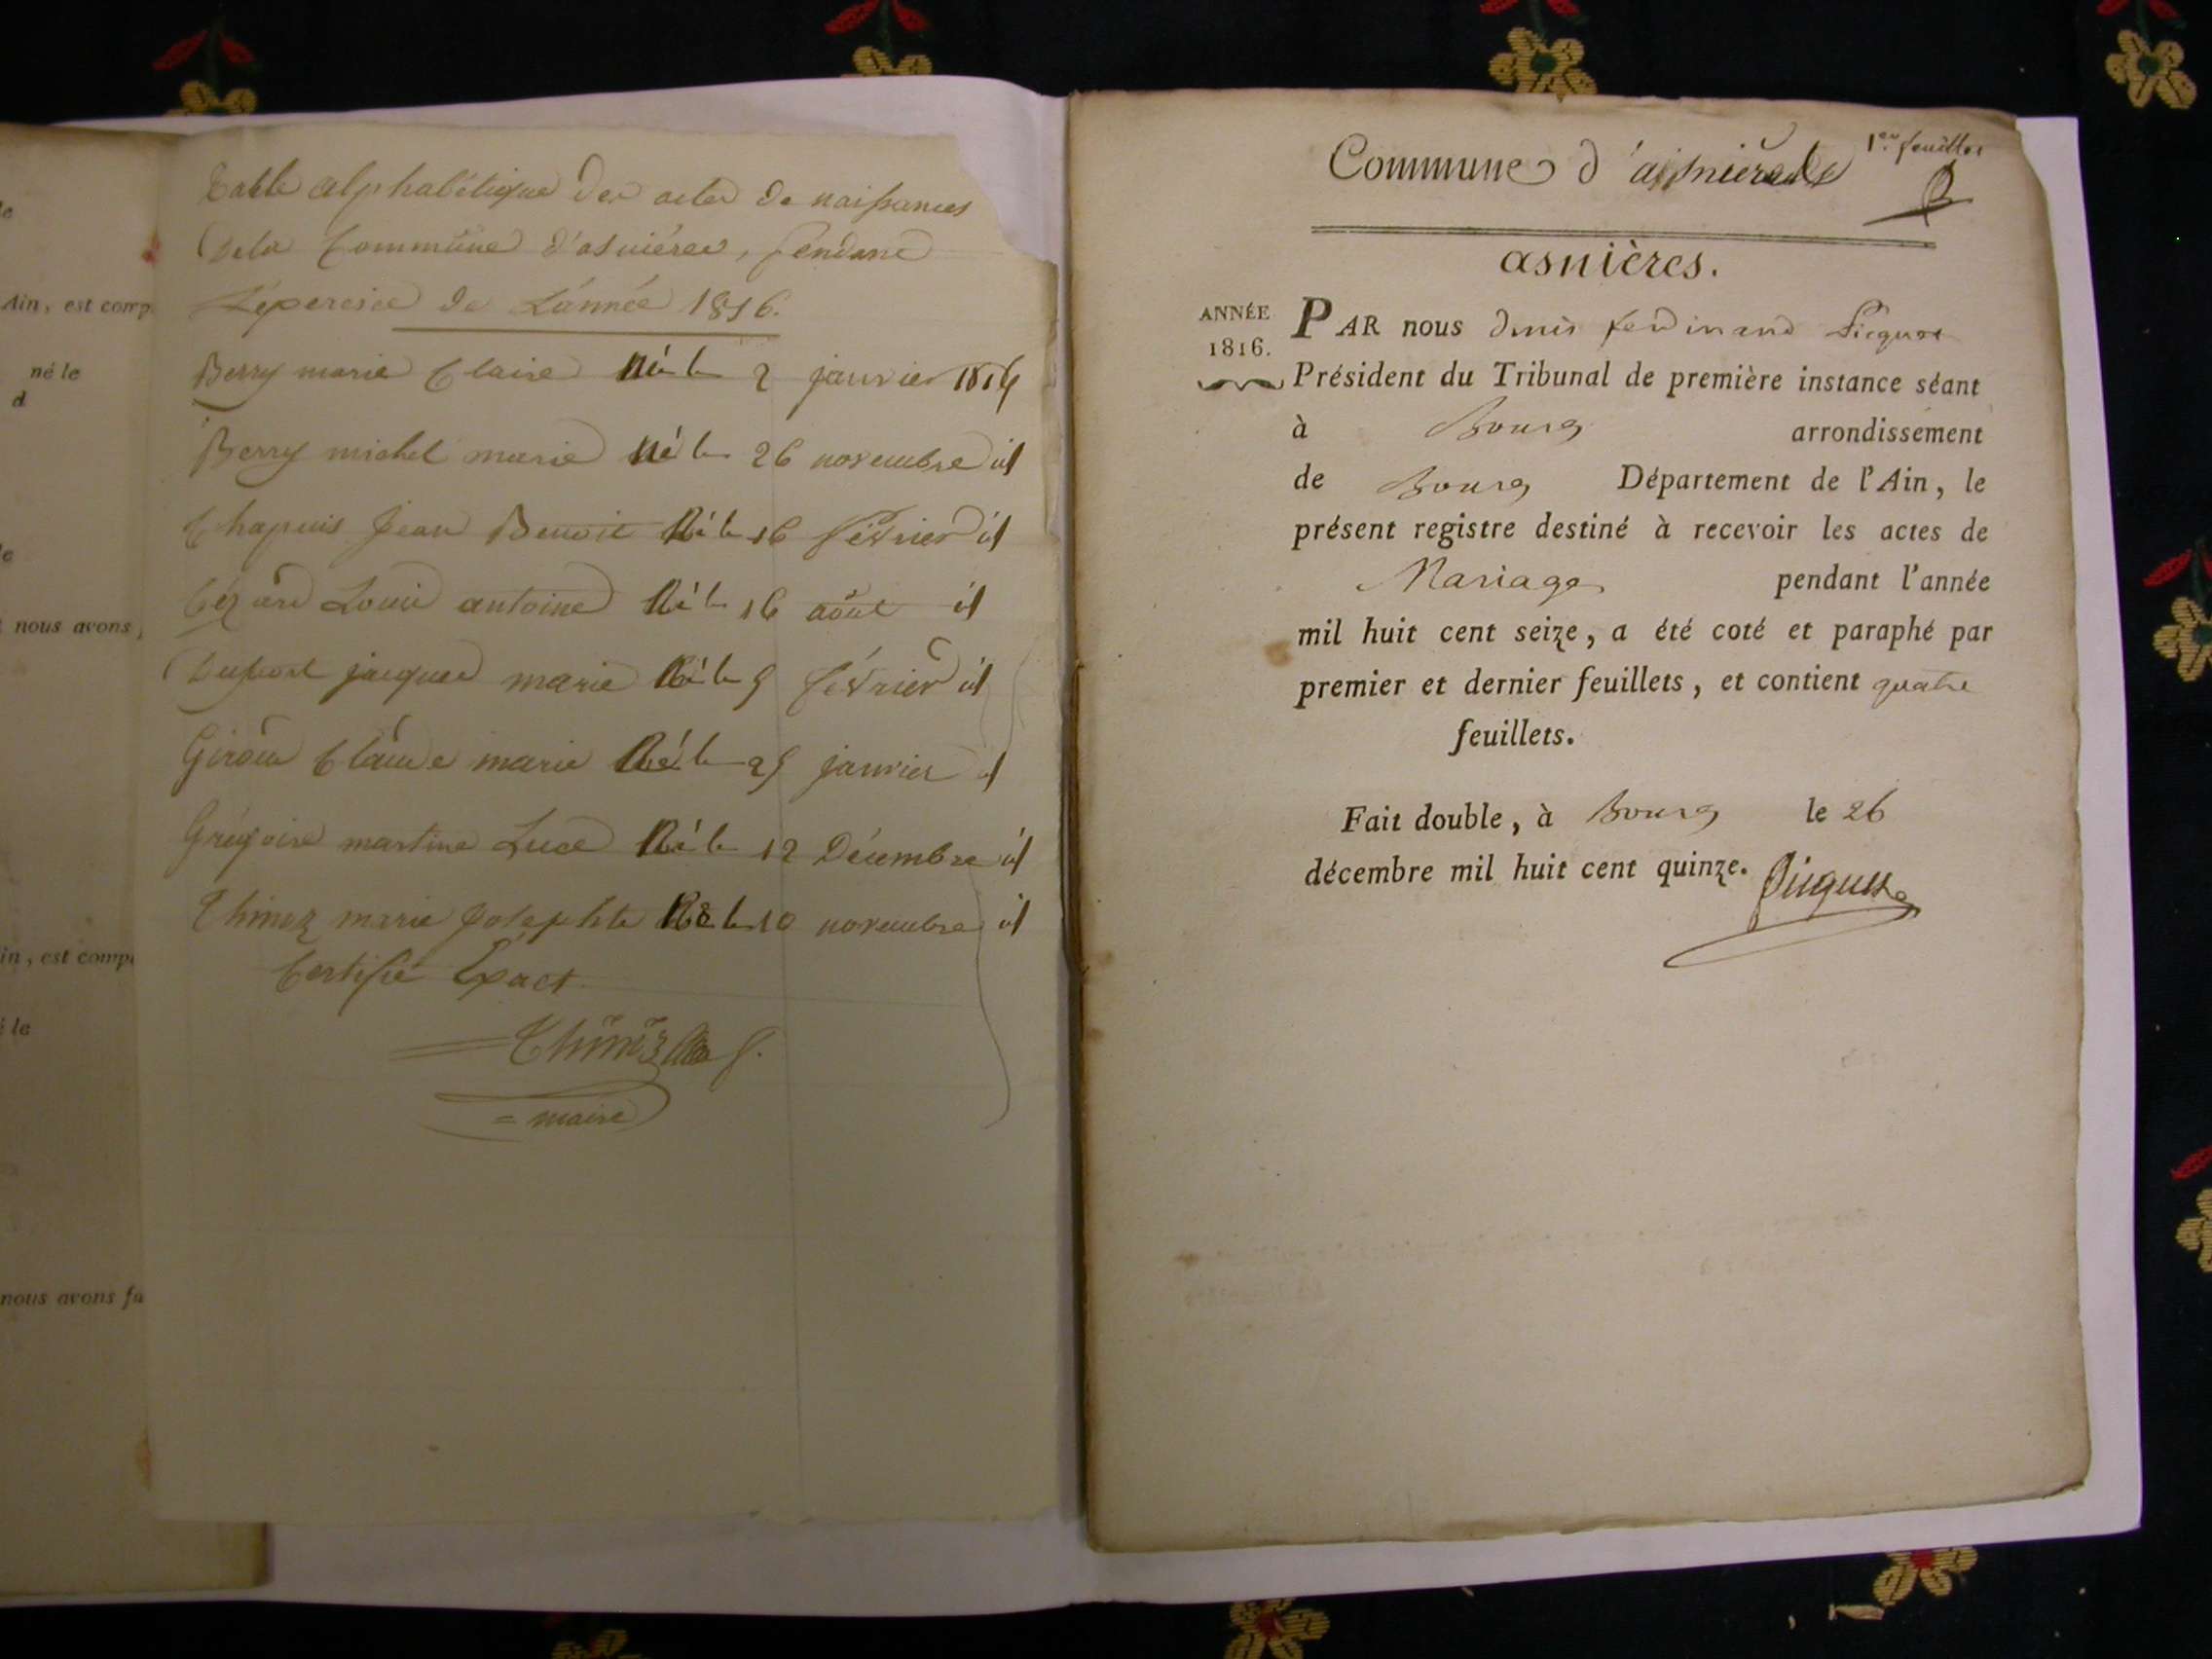 Ain, est comp
né le
d
nous avons,
in, est comp
é le
nous avons fa
Table alphabétique des actes de naissances
De la Commune d'asniéres, pendant
L'éxercise de L'année 1816.
Berry marie Claire Né le 2 janvier 1816
Berry michel marie Né le 26 novembre id
Chapuis Jean Benoit Né le 16 février id
Cézard Louis antoine Né le 16 août id
Dufour jacques marie Né le 9 février id
Giroud Claude marie Né le 25 janvier id
Grégoire martine Luce Né le 12 Décembre id
Thinoz marie Josephte Né le 10 novembre id
Certifié Exact
maire
1er feuillet
Commune d'asnieres
asnières.
ANNÉE
1816.
PAR nous denis ferdinand Picquet
Président du Tribunal de première instance séant
à Bourg arrondissement
de Bourg Département de l'Ain, le
présent registre destiné à recevoir les actes de
Mariage pendant l'année
mil huit cent seize, a été coté et paraphé par
premier et dernier feuillets, et contient quatre
feuillets.
Fait double, à Bourg le 26
décembre mil huit cent quinze. Picquet